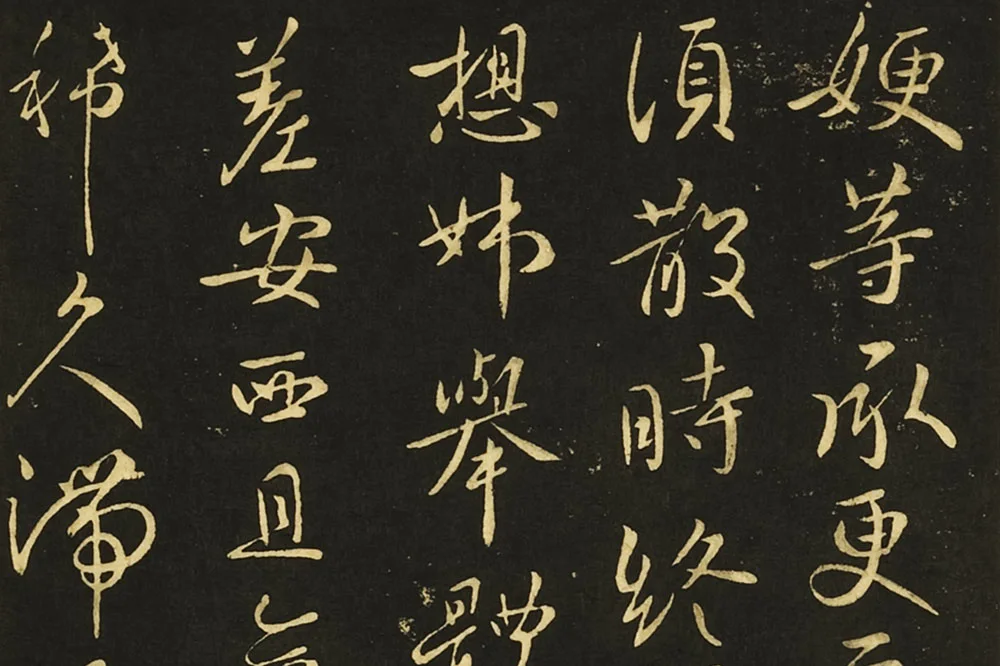 嫂等承更
須散時終
想姊舉體
差安西且
稀久滯